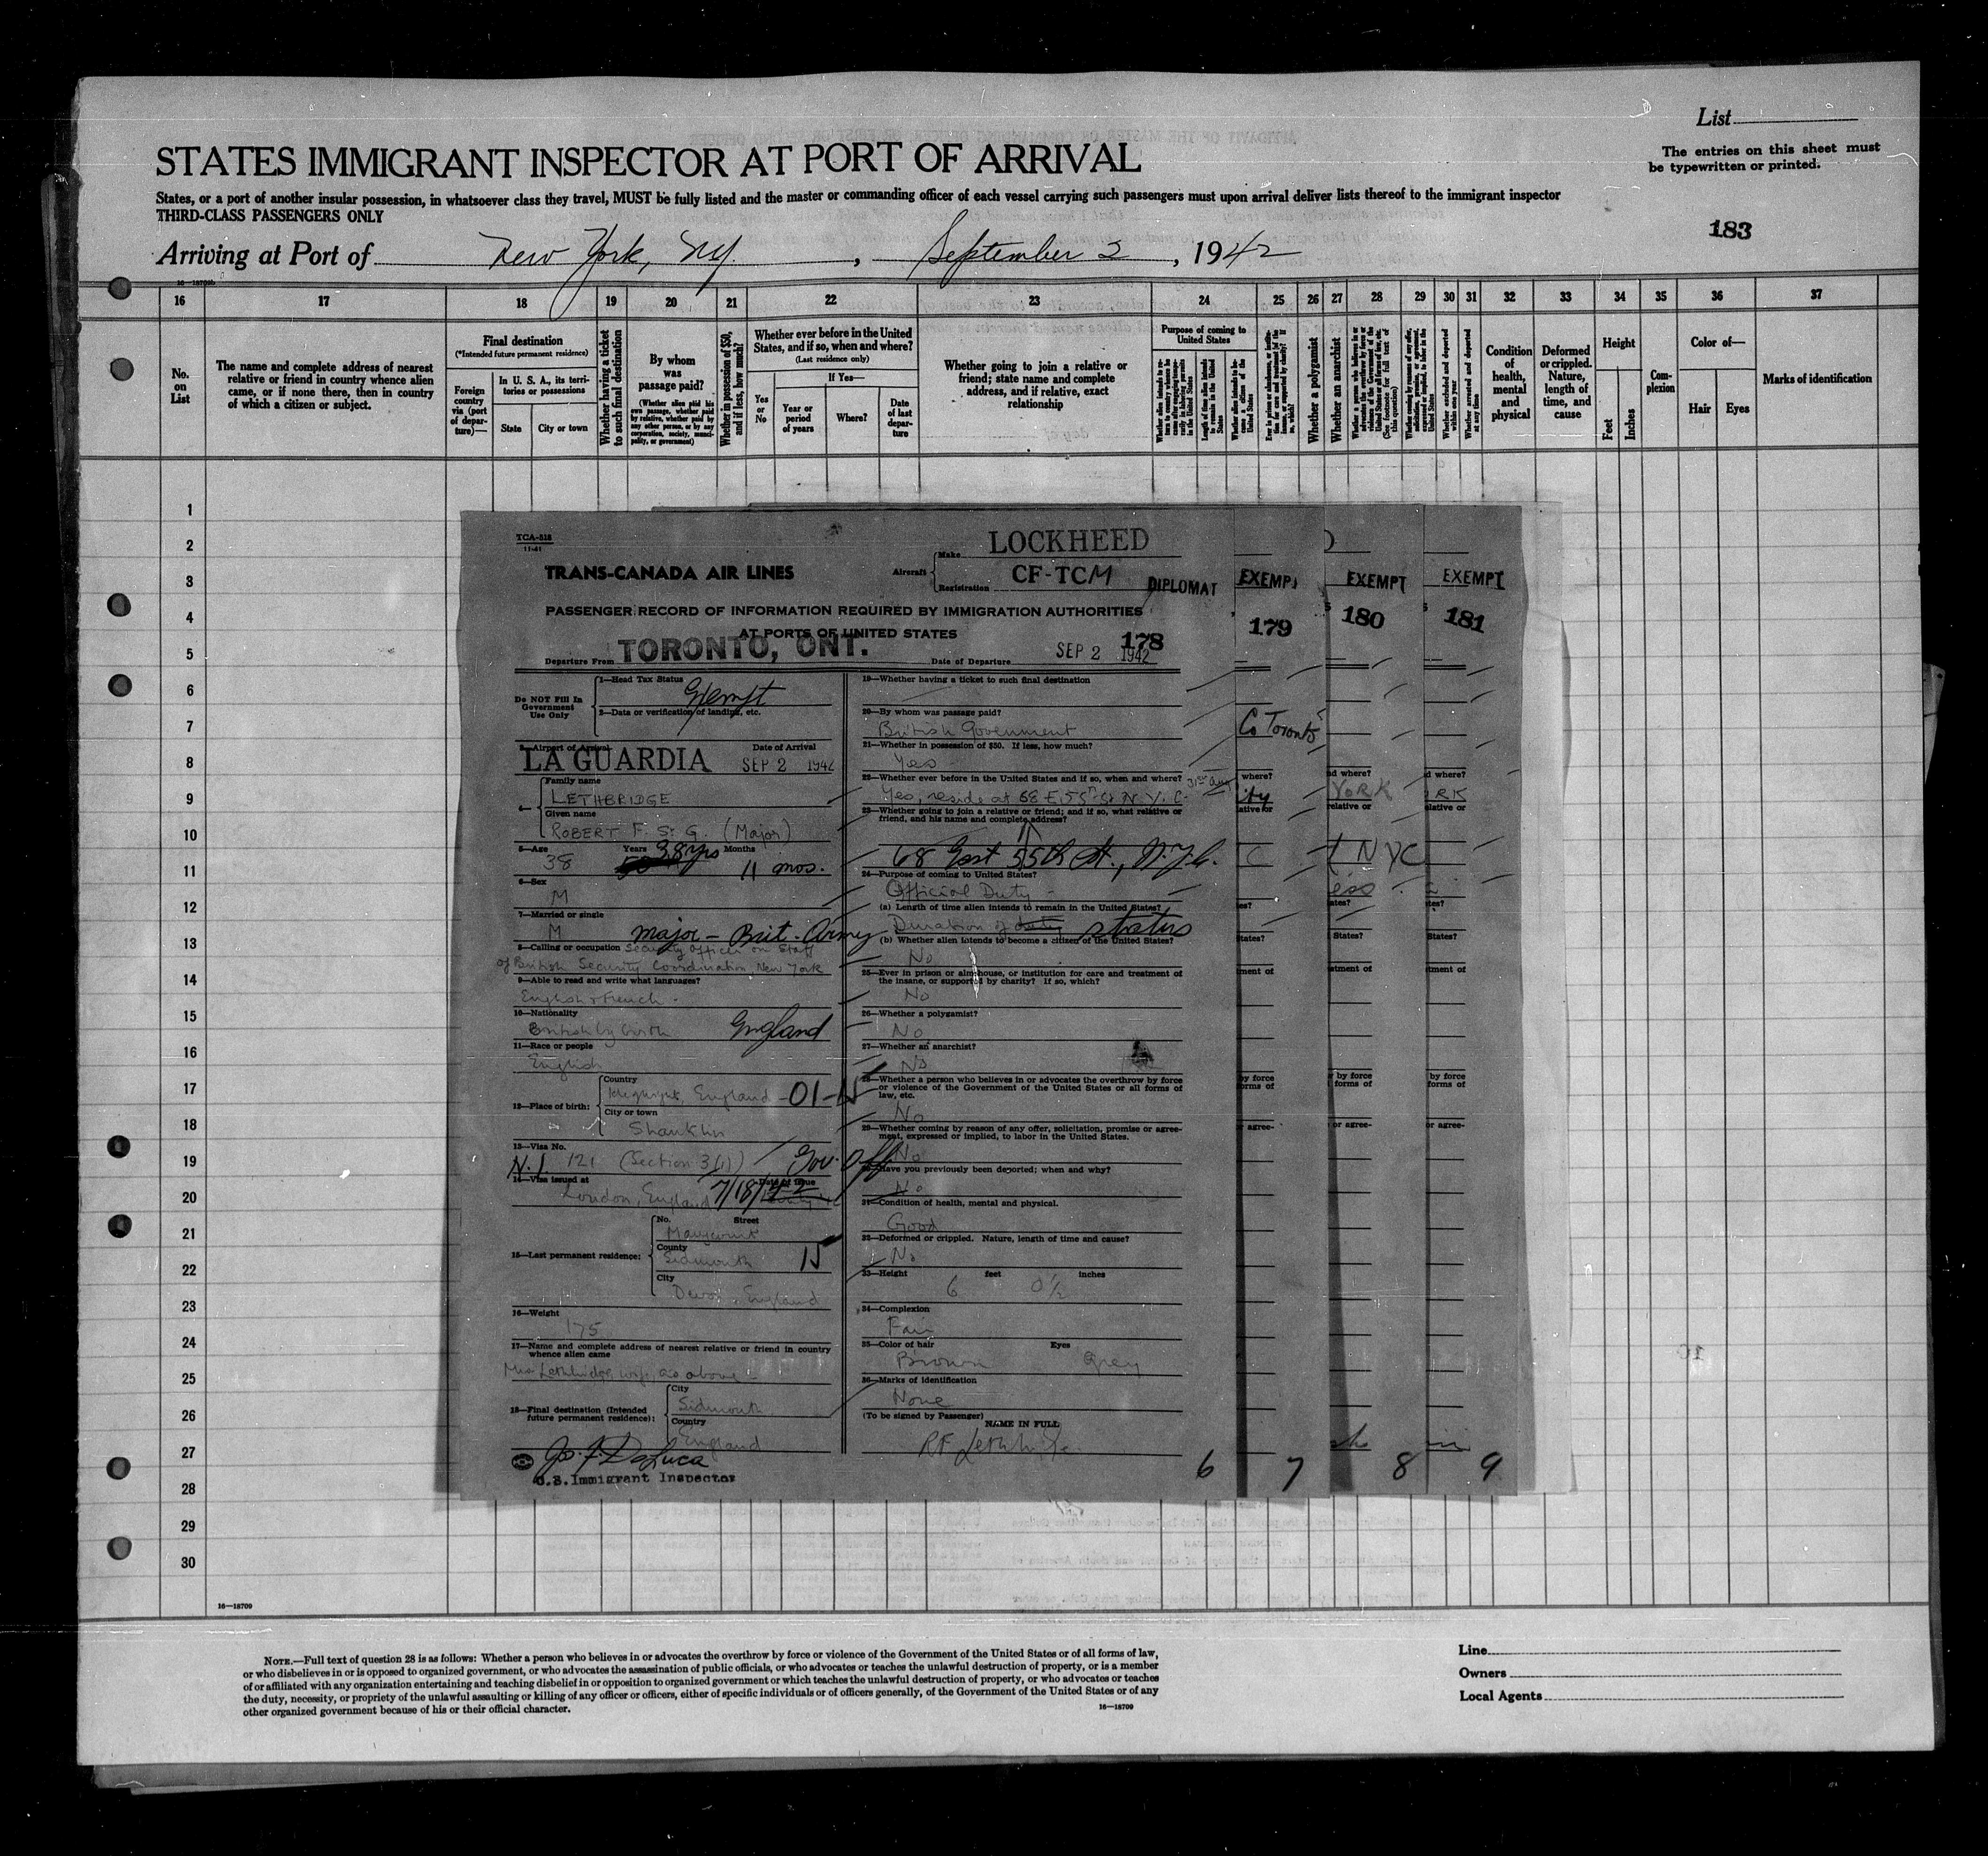 List
The entries on this sheet must
be typewritten or printed.
STATES IMMIGRANT INSPECTOR AT PORT OF ARRIVAL
States, or a port of another insular possession, in whatsoever class they travel, MUST be fully listed and the master or commanding officer of each vessel carrying such passengers must upon arrival deliver lists thereof to the immigrant inspector
THIRD-CLASS PASSENGERS ONLY
183
Arriving at Port of New York, NY. , September 2 , 1942
16 17 18 19 20 21 22 23 24 25 26 27 28 29 30 31 32 33 34 35 36 37
No. on List
The name and complete address of nearest
relative or friend in country whence alien
came, or if none there, then in country
of which a citizen or subject.
Final destination
(*Intended future permanent residence)
Foreign country via (port of departure)—
In U. S. A., its territories or possessions
State
City or town
Whether having a ticket to such final destination
By whom was passage paid?
(Whether alien paid his own passage, whether paid by relative, whether paid by any other person, or by any corporation, society, municipality, or government)
Whether in possession of $50, and if less, how much?
Whether ever before in the United
States, and if so, when and where?
(Last residence only)
Yes or No
If Yes—
Year or period of years
Where?
Date of last departure
Whether going to join a relative or
friend; state name and complete
address, and if relative, exact
relationship
Purpose of coming to
United States
Length of time alien intends to remain in the United States
Whether alien intends to become a citizen of the United States
Whether a polygamist
Whether an anarchist
Whether arrested and deported at any time
Condition of health, mental and physical
Deformed or crippled. Nature, length of time, and cause
Height
Feet
Inches
Complexion
Color of—
Hair
Eyes
Marks of identification
1
2
3
4
5
6
7
8
9
10
11
12
13
14
15
16
17
18
19
20
21
22
23
24
25
26
27
28
29
30
TCA-518
11-41
TRANS-CANADA AIR LINES
Aircraft
Make LOCKHEED
Registration CF-TCM
DIPLOMAT
PASSENGER RECORD OF INFORMATION REQUIRED BY IMMIGRATION AUTHORITIES
AT PORTS OF UNITED STATES
178
Departure From TORONTO, ONT.
Date of Departure SEP 2 1942
Do NOT Fill In
Government
Use Only
1—Head Tax Status Exempt
2—Data or verification of landing, etc.
3—Airport of Arrival LA GUARDIA
Date of Arrival SEP 2 1942
4—
Family name
LETHBRIDGE
Given name
ROBERT F. St G. (Major)
5—Age Years Months
38 38 yrs 11 mos.
6—Sex
M
7—Married or single
M Major – Brit. Army
8—Calling or occupation Security Officer on Staff
of British Security Coordination, New York
9—Able to read and write what languages?
English & French.
10—Nationality
British by birth England
11—Race or people
English
12—Place of birth:
Country
England -01-15
City or town
Shanklin
13—Visa No.
N.I. 121 (Section 3(1)) Gov. Off.
14—Visa issued at Date of Issue
London, England 7/18/42
15—Last permanent residence:
No. Street
County
Sidmouth 15
City
Devon, England
16—Weight
175
17—Name and complete address of nearest relative or friend in country
whence alien came
Mrs Lethbridge, wife, as above –
18—Final destination (Intended
future permanent residence):
City
Sidmouth
Country
England
Jos. F. DeLuca
U.S. Immigrant Inspector
19—Whether having a ticket to such final destination
20—By whom was passage paid?
British Government
21—Whether in possession of $50. If less, how much?
Yes
22—Whether ever before in the United States and if so, when and where? 31st Aug
Yes, reside at 68 E. 55th St N.Y.C.
23—Whether going to join a relative or friend; and if so, what relative or
friend, and his name and complete address?
68 East 55th St., N.Y.C.
24—Purpose of coming to United States?
Official Duty –
(a) Length of time alien intends to remain in the United States?
Duration of duty status
(b) Whether alien intends to become a citizen of the United States?
No
25—Ever in prison or almshouse, or institution for care and treatment of
the insane, or supported by charity? If so, which?
No
26—Whether a polygamist?
No
27—Whether an anarchist?
No
28—Whether a person who believes in or advocates the overthrow by force
or violence of the Government of the United States or all forms of
law, etc.
No
29—Whether coming by reason of any offer, solicitation, promise or agree-
ment, expressed or implied, to labor in the United States.
No
Have you previously been deported; when and why?
No
31—Condition of health, mental and physical.
Good
32—Deformed or crippled. Nature, length of time and cause?
No
33—Height
6 feet 0½ inches
34—Complexion
Fair
35—Color of hair Eyes
Brown Grey
36—Marks of identification
None
(To be signed by Passenger)
NAME IN FULL
RF Lethbridge
6
EXEMPT
179
Co Toronto
where?
ity
ative or
C
es?
States?
ment of
by force
orms of
agree-
7
EXEMPT
180
d where?
YORK
relative or
t NYC
ess
ates?
States?
atment of
by force
forms of
or agree-
8
EXEMPT
181
d where?
RK
elative or
tes?
States?
tment of
by force
forms of
or agree-
9
16—18709
NOTE.—Full text of question 28 is as follows: Whether a person who believes in or advocates the overthrow by force or violence of the Government of the United States or of all forms of law,
or who disbelieves in or is opposed to organized government, or who advocates the assassination of public officials, or who advocates or teaches the unlawful destruction of property, or is a member
of or affiliated with any organization entertaining and teaching disbelief in or opposition to organized government or which teaches the unlawful destruction of property, or who advocates or teaches
the duty, necessity, or propriety of the unlawful assaulting or killing of any officer or officers, either of specific individuals or of officers generally, of the Government of the United States or of any
other organized government because of his or their official character.
16—18709
Line
Owners
Local Agents